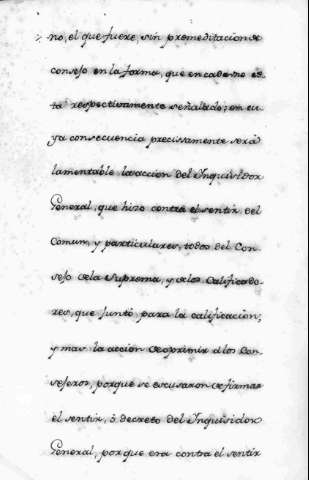 no, el que fuere, sin premeditacion, ó
consejo en la forma, que en cada uno es-
tá respectivamente señalado; en cu-
ya consecuencia precissamente será
lamentable la accion del Inquisidor
General, que hizo contra el sentir del
Comun, y particulares, todos del Con-
sejo de la Suprema, y de los Calificado-
res, que juntó para la calificacion;
y mas la accion de oprimir á los Con-
sejeros, porque se escusaron de firmar
el sentir, ó decreto del Inquisidor
General, porque era contra el sentir